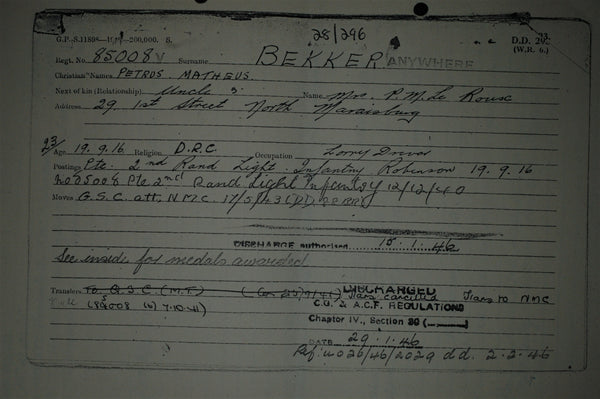 28/296
G.P.-S.11598- -200,000. S.
D.D. 292
(W.R. 6.)
Regt. No. 85008 V Surname BEKKER ANYWHERE
Christian Names PETRUS MATHEUS
Next of kin (Relationship) Uncle Name Mr. P.M. Le Roux
Address 29 1st Street North Maraisburg
23/
Age 19.9.16 Religion D.R.C. Occupation Lorry Driver
Postings Pte. 2nd Rand Light Infantry Robinson 19.9.16
No 85008 Pte 2nd Rand Light Infantry 12/12/40
Moves G.S.C. att. N.M.C.
DISCHARGE authorised 15.1.46
See inside for medals awarded
Transfers To G.S.C. (M.T.) Trans cancelled Trans to NMC
7-10-41)
DISCHARGED
C.G. & A.C.F. REGULATIONS
Chapter IV., Section
DATE 29.1.46
Ref: 4026/46/2029 dd. 2.2.46